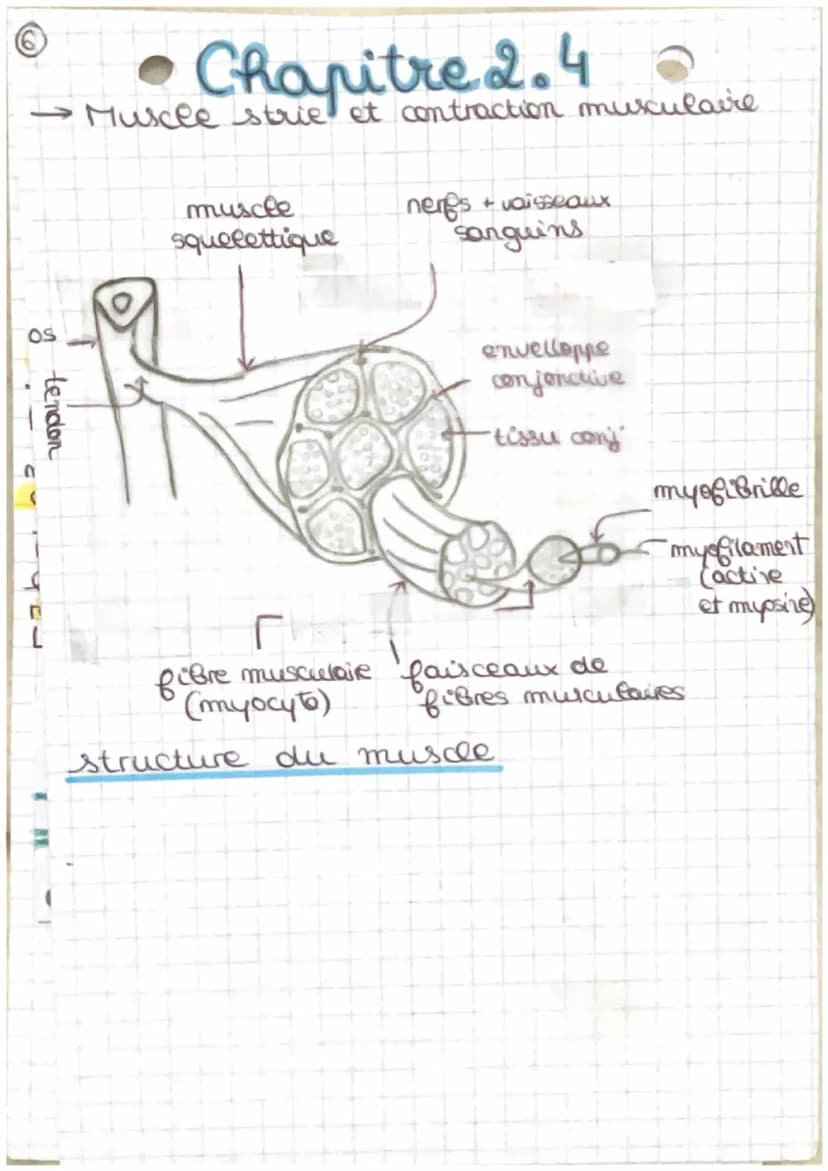 6
Chapitre 2.4
→ Muscle strié et contraction musculaire
muscle
squelettique
nerfs + vaisseaux
sanguins
os
tendon
envelloppe
conjonctive
tissu conj'
myofibrille
myofilament
(actine
et myosine)
fibre musculaie
(myocyto)
faisceaux de
fibres musculaires
structure du muscle